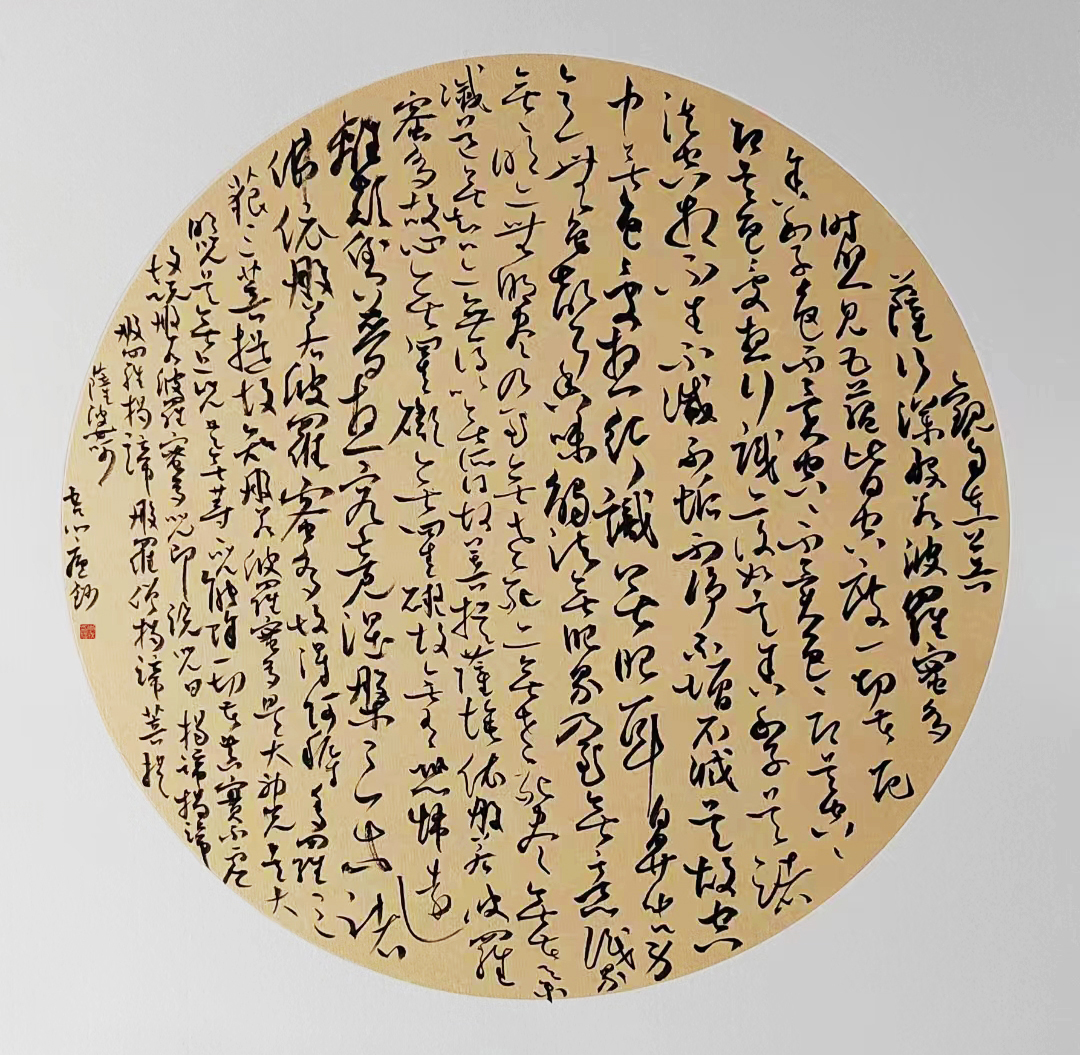 觀自在菩
薩行深般若波羅蜜多
时照見五蘊皆空度一切苦厄
舍利子色不異空空不異色色即是空空
即是色受想行識亦復如是舍利子是諸
法空相不生不滅不垢不淨不增不減是故空
中無色受想行識無眼耳鼻舌身
意無色聲香味觸法無眼界乃至無意識界
無無明亦無明盡乃至無老死亦無老死盡無苦集
滅道無智亦無得以無所得故菩提薩埵依般若波羅
蜜多故心無罣礙無罣礙故無有恐怖遠
離顛倒夢想究竟涅槃三世諸
佛依般若波羅蜜多故得阿耨多羅三
藐三菩提故知般若波羅蜜多是大神咒是大
明咒是無上咒是無等等咒能除一切苦真實不虛
故說般若波羅蜜多咒即說咒曰揭諦揭諦
般羅揭諦般羅僧揭諦菩提
薩婆訶